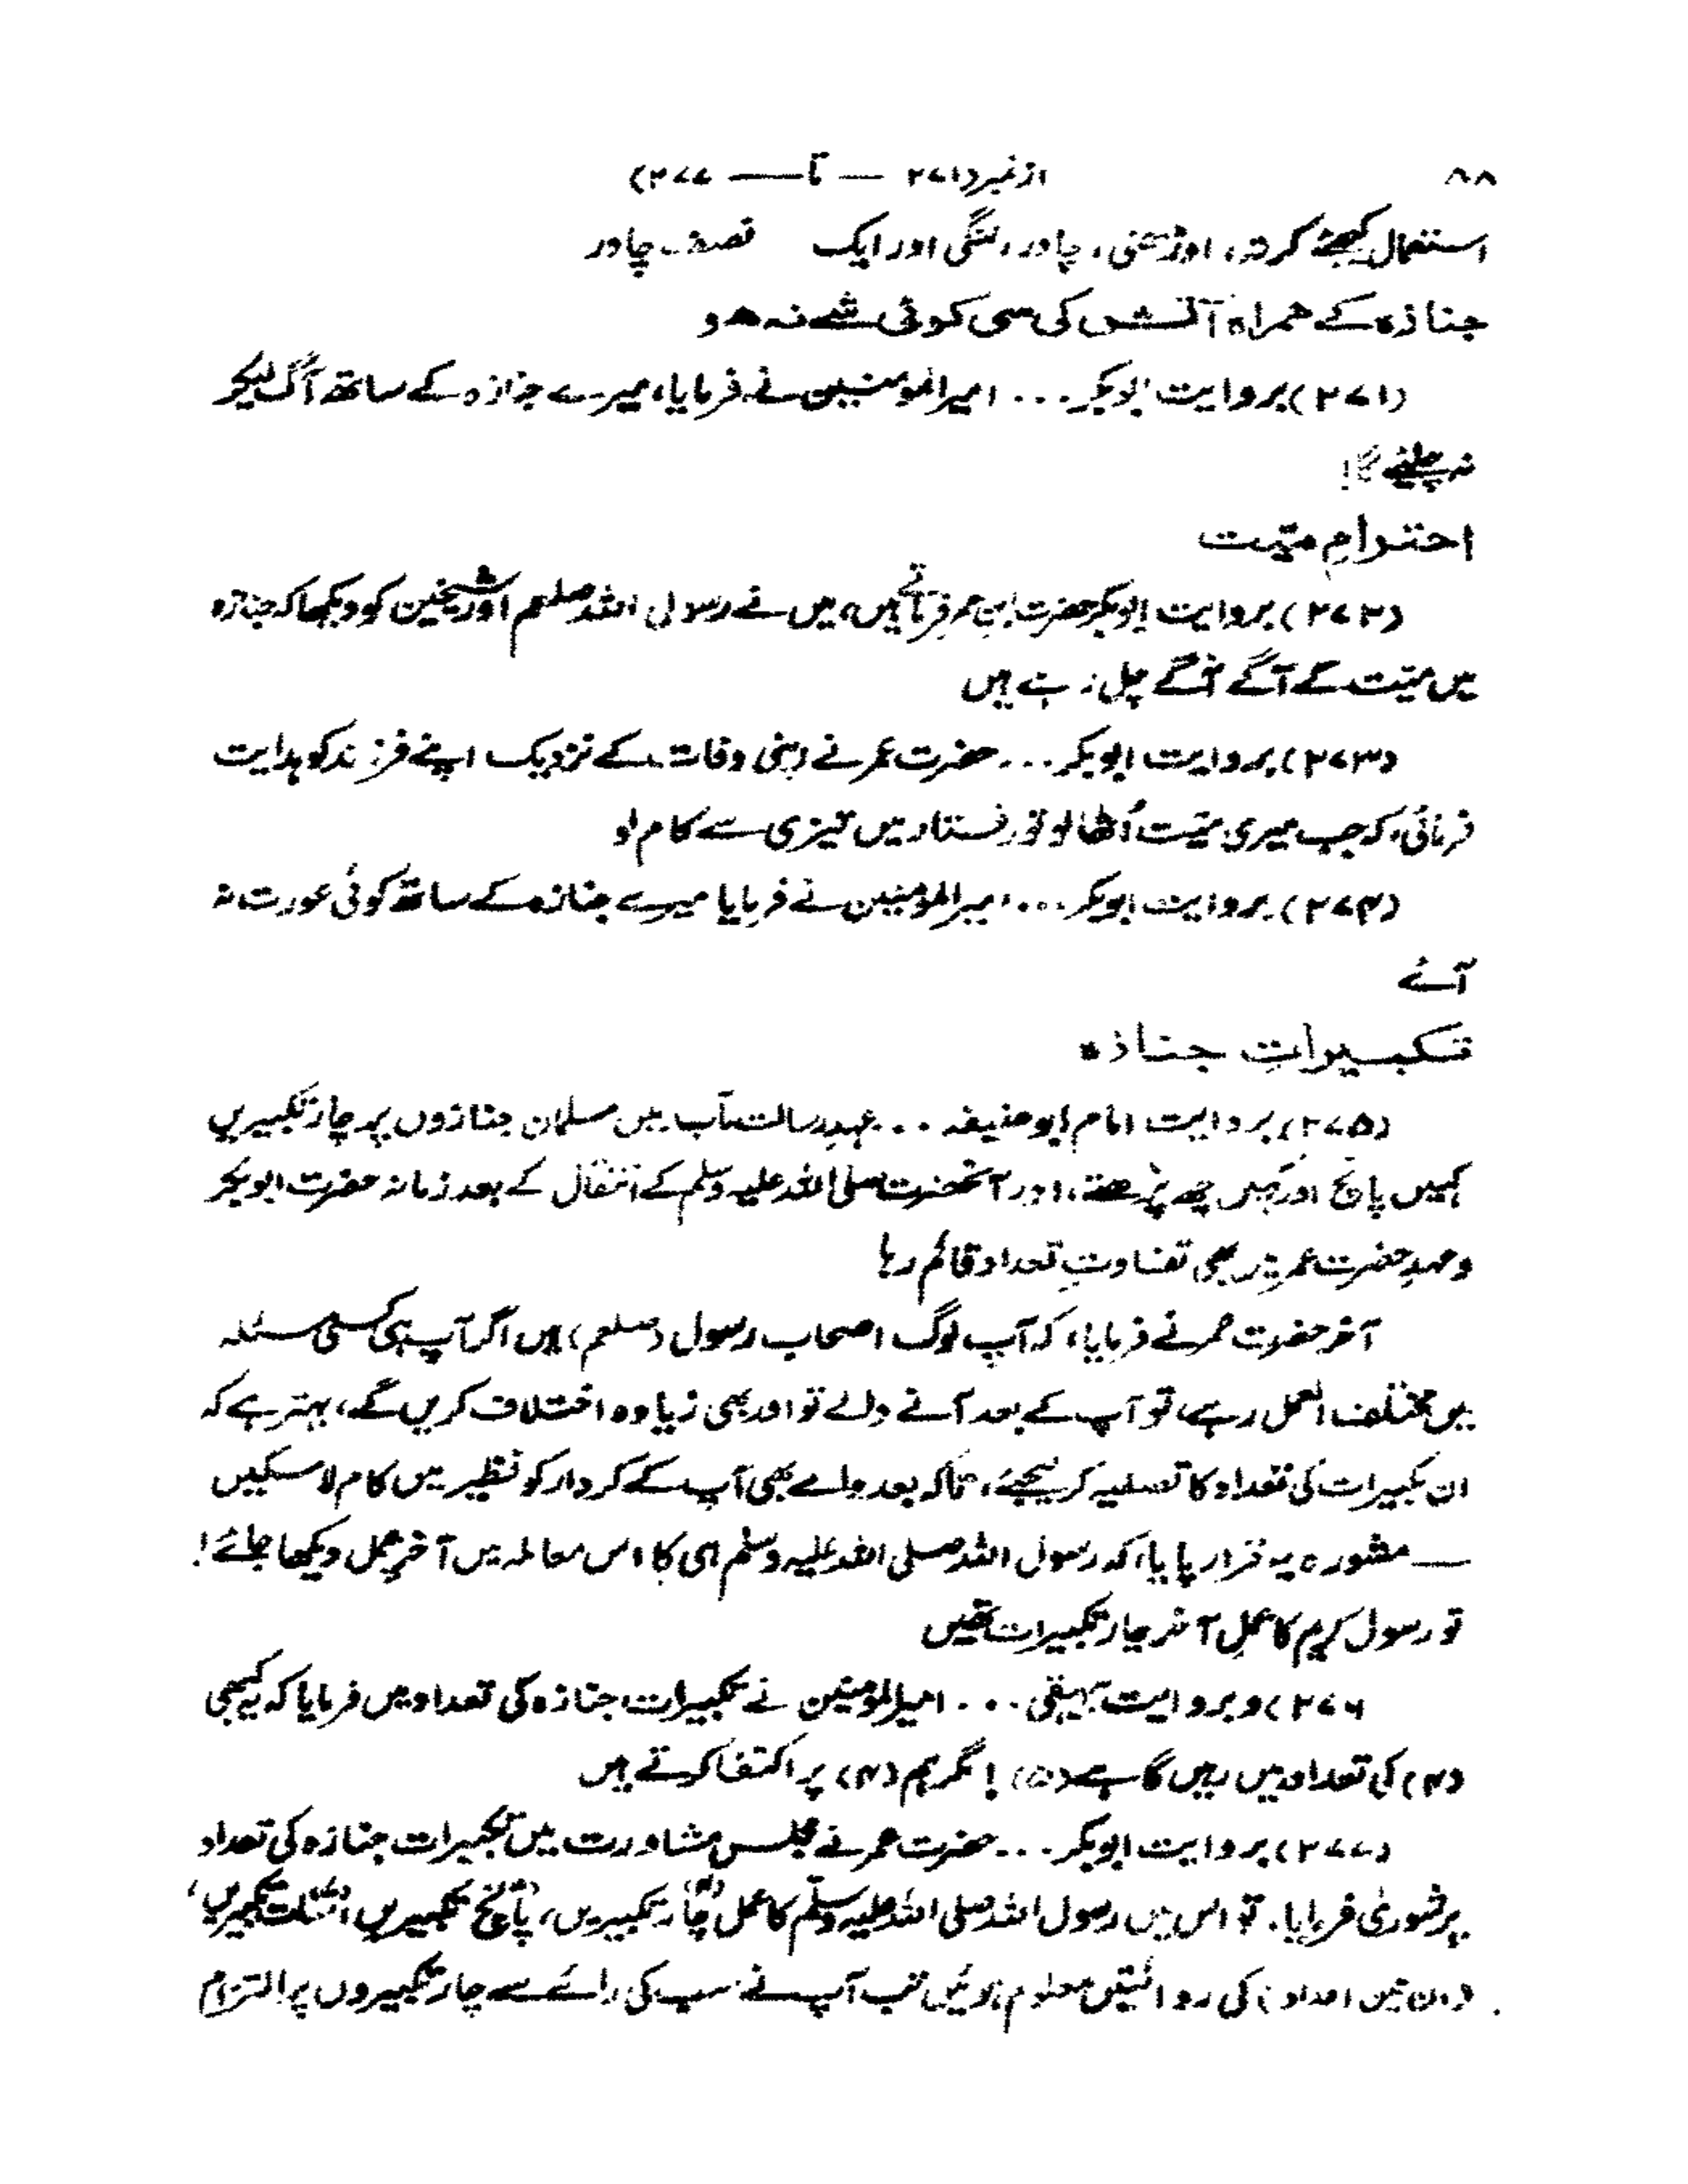 ۸۸ از نمبر (۲۷۱ — تا — ۲۷۷)
استعمال کیجئے کرتہ، اوڑھنی، چادر، لنگی اور ایک نصف چادر
جنازہ کے ہمراہ آتش کی سی کوئی شے نہ ہو
(۲۷۱) بروایت ابوبکر... امیرالمومنین نے فرمایا، میرے جنازہ کے ساتھ آگ لیکر
نہ چلئیے گا!
احترامِ میّت
(۲۷۲) بروایت ابوبکر حضرت ابن عمر فرماتے ہیں، میں نے رسول اللہ صلعم اور شیخین کو دیکھا کہ جنازہ
میں میّت کے آگے آگے چل رہے ہیں
(۲۷۳) بروایت ابوبکر... حضرت عمر نے اپنی وفات کے نزدیک اپنے فرزند کو ہدایت
فرمائی، کہ جب میری میّت اُٹھا لو تو رفتار میں تیزی سے کام لو
(۲۷۴) بروایت ابوبکر... امیرالمومنین نے فرمایا میرے جنازہ کے ساتھ کوئی عورت نہ
آئے
تکبیراتِ جنازہ
(۲۷۵) بروایت امام ابو حنیفہ... عہدِ رسالت مآب میں مسلمان جنازوں پر چار تکبیریں
کہیں پانچ اور کہیں چھ پڑھتے، اور آنحضرت صلی اللہ علیہ وسلم کے انتقال کے بعد زمانہ حضرت ابوبکر
و عہدِ حضرت عمر پر بھی تفاوتِ تعداد قائم رہا
آخر حضرت عمر نے فرمایا، کہ آپ لوگ اصحاب رسول (صلعم) ہیں اگر آپ ہی کسی مسئلہ
میں مختلف العمل رہے، تو آپ کے بعد آنے والے تو اور بھی زیادہ اختلاف کریں گے، بہتر ہے کہ
ان تکبیرات کی تعداد کا تصفیہ کر لیجئے، تاکہ بعد والے بھی آپ کے کردار کو نظیر میں کام لا سکیں
— مشورہ یہ قرار پایا، کہ رسول اللہ صلی اللہ علیہ وسلم ہی کا اس معاملہ میں آخرِ عمل دیکھا جائے!
تو رسول کریم کا عملِ آخر چار تکبیرات تھیں
۲۷۶) و بروایت بیہقی... امیرالمومنین نے تکبیرات جنازہ کی تعداد میں فرمایا کہ یہ کبھی
(۴) کی تعداد میں رہیں گاہے (۵) ! مگر ہم (۴) پر اکتفا کرتے ہیں
(۲۷۷) بروایت ابوبکر... حضرت عمر نے مجلس مشاورت میں تکبیرات جنازہ کی تعداد
پر شوریٰ فرمایا. تو اس میں رسول اللہ صلی اللہ علیہ وسلم کا عمل چار تکبیریں، پانچ تکبیریں، سات تکبیریں،
(ان تین اعداد) کی روائتیں معلوم ہوئیں تب آپ نے سب کی رائے سے چار تکبیروں پر التزام